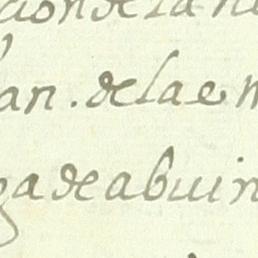 cion de la n
an. de la e m
ga de abuin